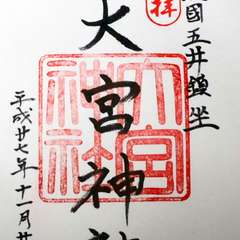 國五井鎮坐
拝
大宮神社
大宮神社
平成廿七年十一月廿